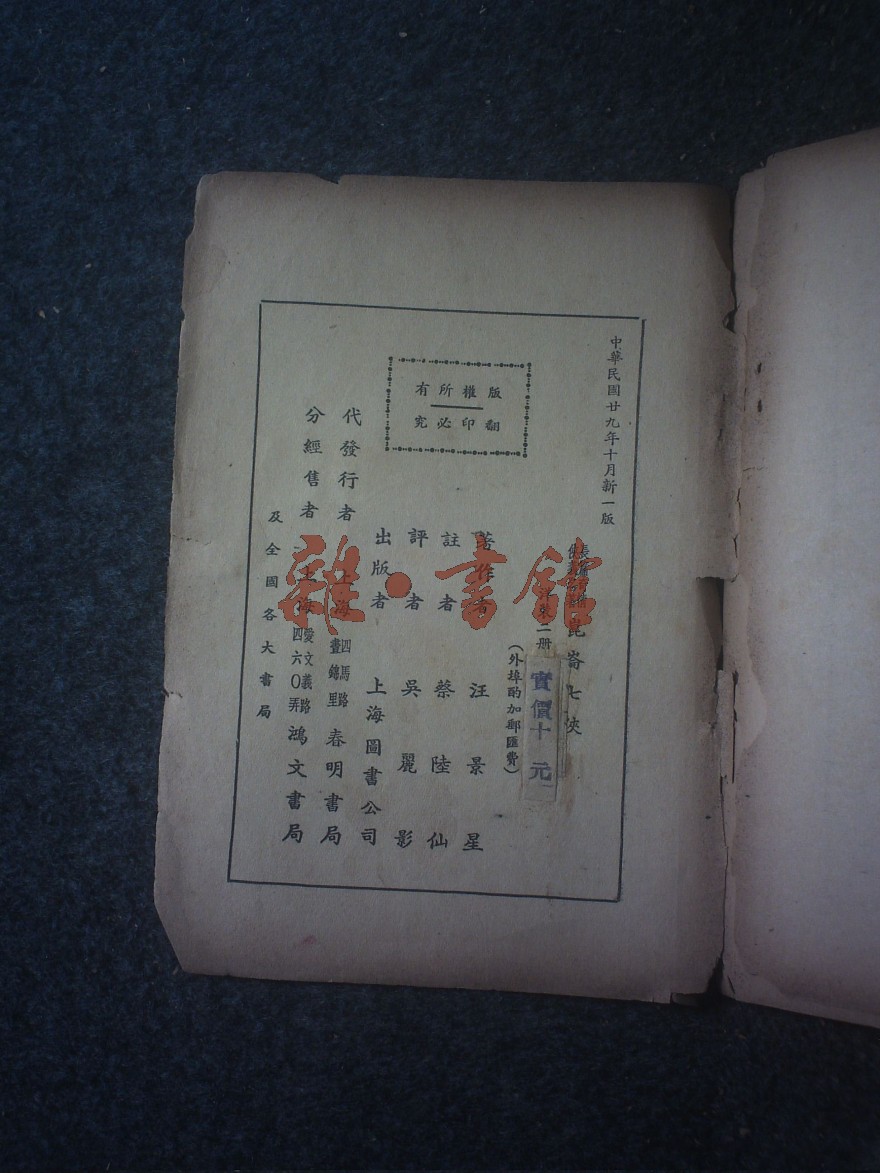 中華民國廿九年十月新一版
崑崙七俠
洋裝二冊
實價十元
(外埠酌加郵匯費)
版權所有
翻印必究
著作者 汪景星
註者 蔡陸仙
評者 吳麗影
出版者 上海圖書公司
代發行者 上海四馬路畫錦里 春明書局
分經售者 上海愛文義路四六〇弄 鴻文書局
及全國各大書局
雜·書館